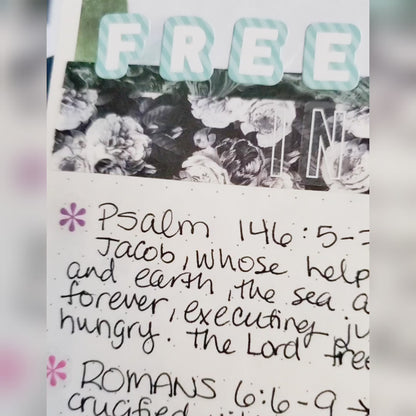 FREE
IN
Psalm 146:5-
Jacob, whose help
and earth, the sea a
forever, executing ju
hungry. The Lord free
ROMANS 6:6-9 →
crucified